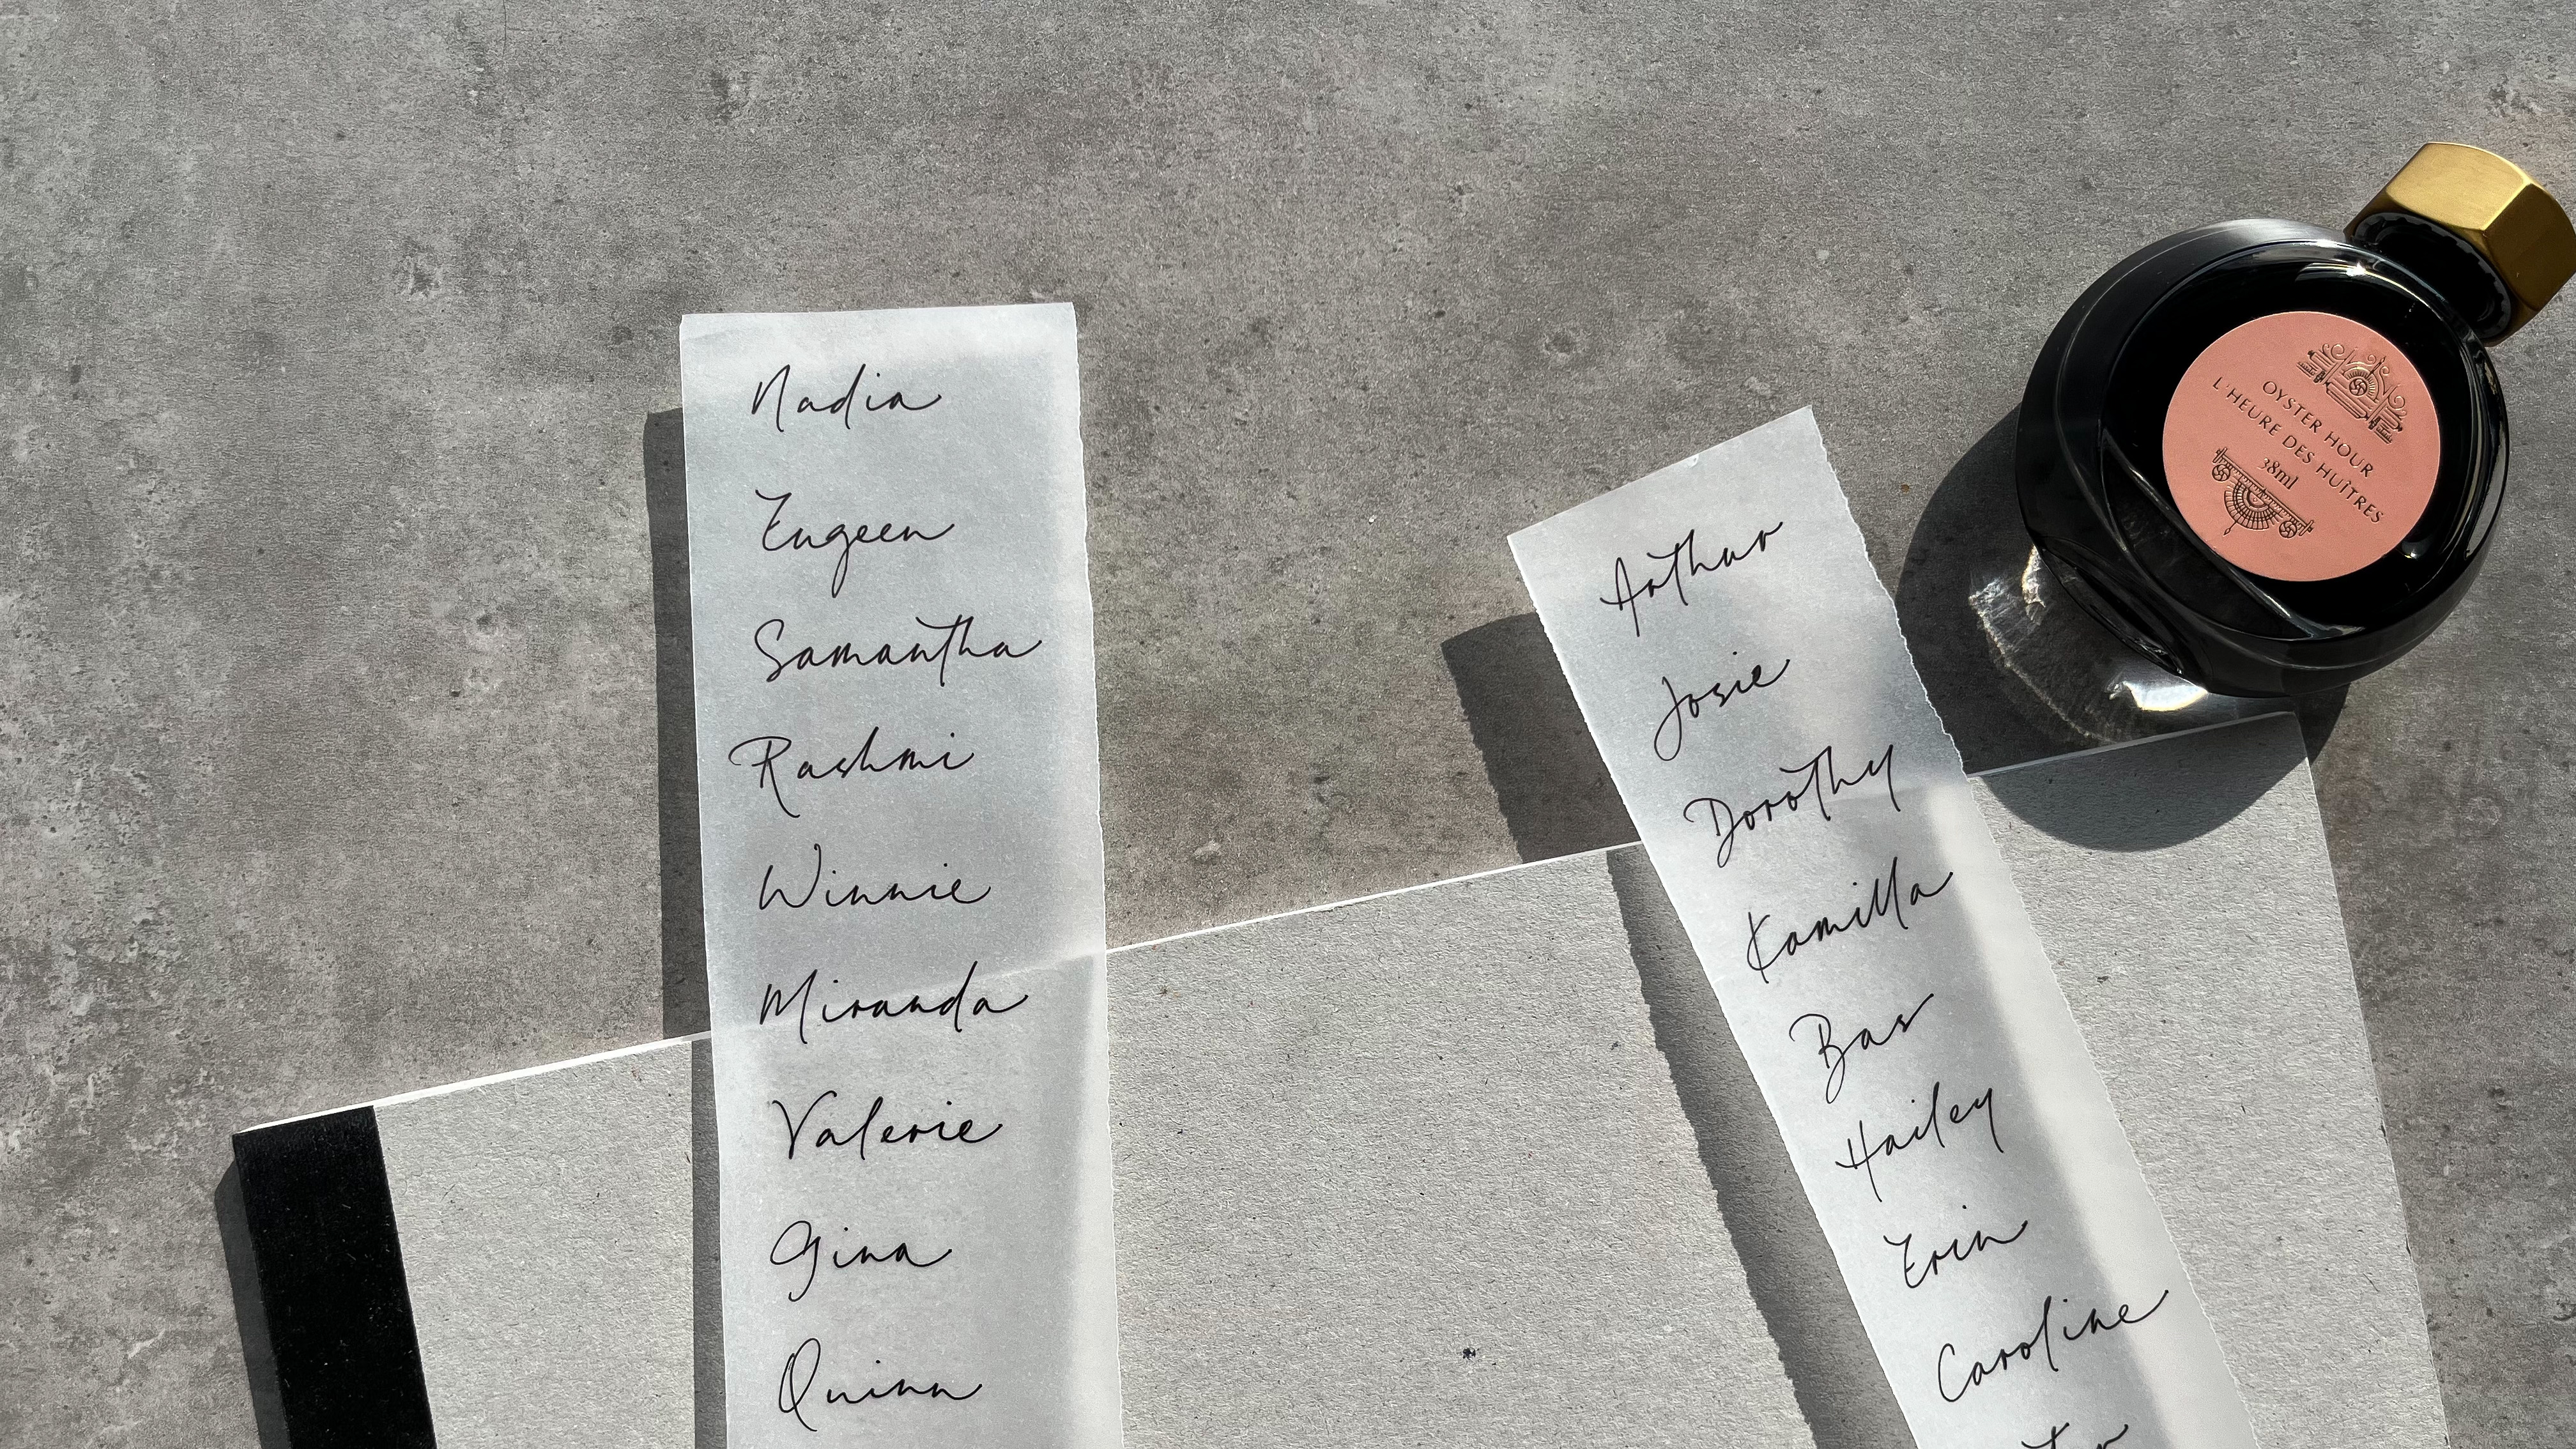 Nadia
Eugeen
Samantha
Rashmi
Winnie
Miranda
Valerie
Gina
Quinn
Arthur
Josie
Dorothy
Kamilla
Bas
Hailey
Erin
Caroline
OYSTER HOUR
L'HEURE DES HUÎTRES
38ml